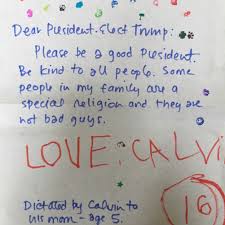 Dear President-Elect Trump:
Please be a good President.
Be kind to all people. Some
people in my family are a
special religion and they are
not bad guys.
LOVE, CALVI
Dictated by Calvin to
his mom - age 5.
16